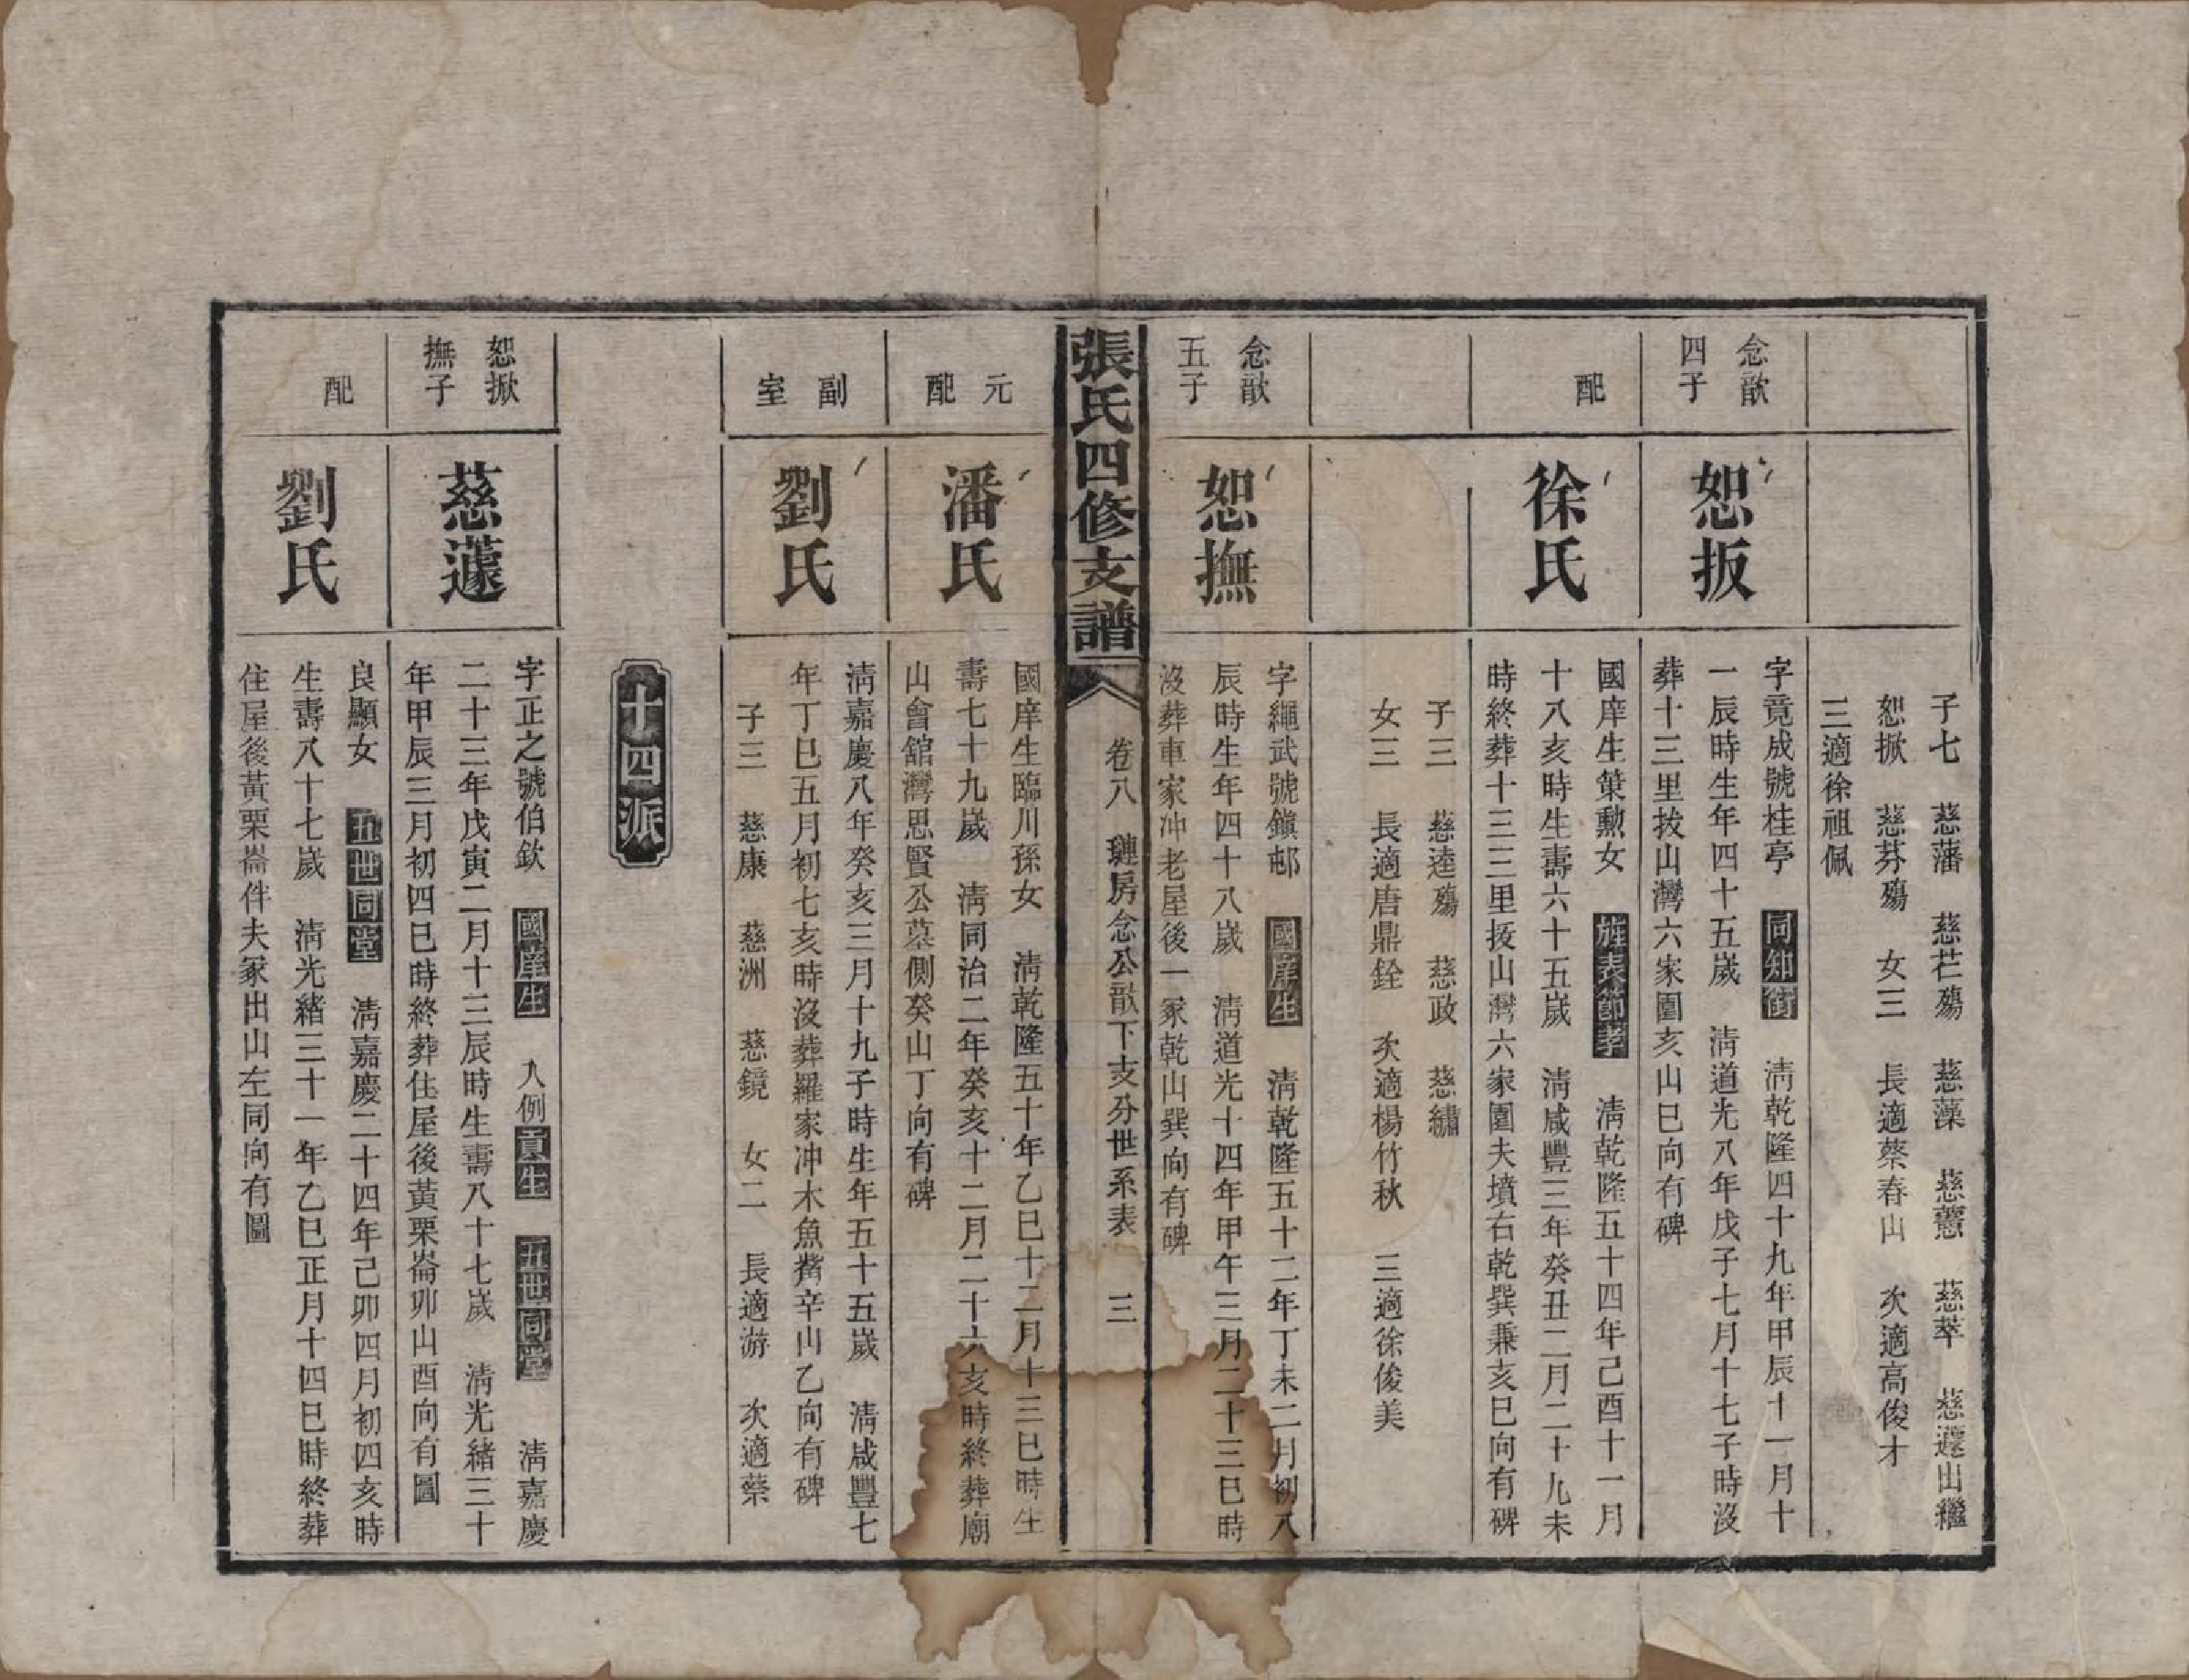 子七　慈藩　慈芢殤　慈藻　慈藼　慈萃　慈蘧出繼
恕掀　慈芬殤　女三　長適蔡春山　次適高俊才
三適徐祖佩
念歆
四子
恕扳
字竟成號桂亭　同知銜　淸乾隆四十九年甲辰十一月十
一辰時生年四十五歲　淸道光八年戊子七月十七子時沒
葬十三里拔山灣六家圍亥山巳向有碑
配
徐氏
國庠生策勲女　旌表節孝　淸乾隆五十四年己酉十一月
十八亥時生壽六十五歲　淸咸豐三年癸丑二月二十九未
時終葬十三里拔山灣六家圍夫墳右乾巽兼亥巳向有碑
子三　慈逵殤　慈政　慈繡
女三　長適唐鼎銓　次適楊竹秋　三適徐俊美
念歆
五子
恕撫
字繩武號鎭邨　國庠生　淸乾隆五十二年丁未二月初八
辰時生年四十八歲　淸道光十四年甲午三月二十三巳時
沒葬車家冲老屋後一冢乾山巽向有碑
張氏四修支譜　卷八　璉房念公歆下支分世系表　三
元
配
潘氏
國庠生臨川孫女　淸乾隆五十年乙巳十二月十三巳時生
壽七十九歲　淸同治二年癸亥十二月二十六亥時終葬廟
山會舘灣思賢公墓側癸山丁向有碑
副
室
劉氏
淸嘉慶八年癸亥三月十九子時生年五十五歲　淸咸豐七
年丁巳五月初七亥時沒葬羅家冲木魚觜辛山乙向有碑
子三　慈康　慈洲　慈鏡　女二　長適游　次適蔡
十四派
恕掀
撫子
慈蘧
字正之號伯欽　國庠生　入例貢生　五世同堂　淸嘉慶
二十三年戊寅二月十三辰時生壽八十七歲　淸光緖三十
年甲辰三月初四巳時終葬住屋後黃栗崙卯山酉向有圖
配
劉氏
良顯女　五世同堂　淸嘉慶二十四年己卯四月初四亥時
生壽八十七歲　淸光緖三十一年乙巳正月十四巳時終葬
住屋後黃栗崙伴夫冢出山左同向有圖